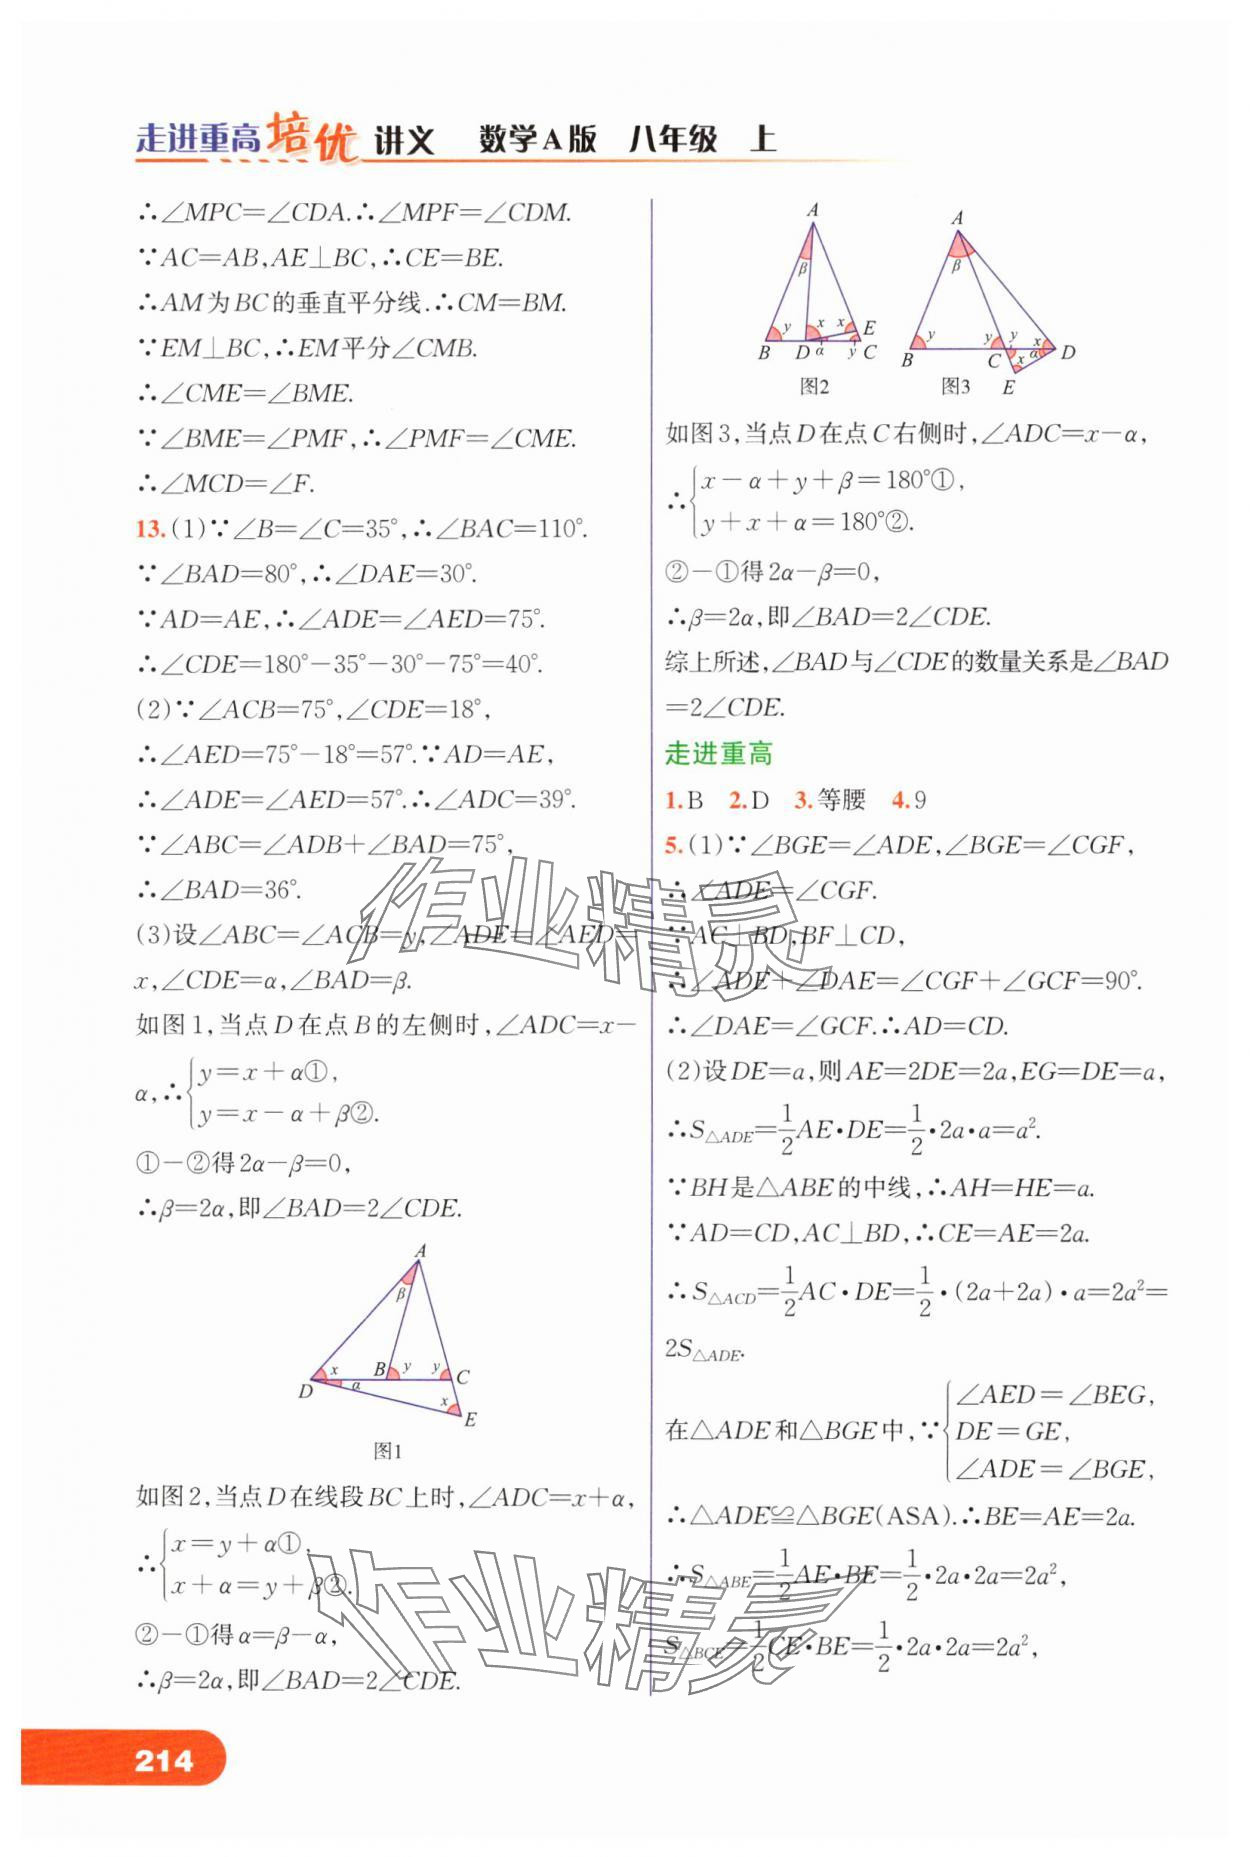 走进重高培优 讲义 数学A版 八年级 上
∴∠MPC=∠CDA.∴∠MPF=∠CDM.
∵AC=AB,AE⊥BC,∴CE=BE.
∴AM为BC的垂直平分线.∴CM=BM.
∵EM⊥BC,∴EM平分∠CMB.
∴∠CME=∠BME.
∵∠BME=∠PMF,∴∠PMF=∠CME.
∴∠MCD=∠F.
13.(1)∵∠B=∠C=35°,∴∠BAC=110°.
∵∠BAD=80°,∴∠DAE=30°.
∵AD=AE,∴∠ADE=∠AED=75°.
∴∠CDE=180°-35°-30°-75°=40°.
(2)∵∠ACB=75°,∠CDE=18°,
∴∠AED=75°-18°=57°.∵AD=AE,
∴∠ADE=∠AED=57°.∴∠ADC=39°.
∵∠ABC=∠ADB+∠BAD=75°,
∴∠BAD=36°.
(3)设∠ABC=∠ACB=y,∠ADE=∠AED=
x,∠CDE=α,∠BAD=β.
如图1,当点D在点B的左侧时,∠ADC=x-
α,∴{y=x+α①,
y=x-α+β②.
①-②得2α-β=0,
∴β=2α,即∠BAD=2∠CDE.
A
β
x B y y C
D α
x E
图1
如图2,当点D在线段BC上时,∠ADC=x+α,
∴{x=y+α①,
x+α=y+β②.
②-①得α=β-α,
∴β=2α,即∠BAD=2∠CDE.
214
A
β
y x x E
B D α y C
图2
A
β
y y y x D
B C x α
E
图3
如图3,当点D在点C右侧时,∠ADC=x-α,
∴{x-α+y+β=180°①,
y+x+α=180°②.
②-①得2α-β=0,
∴β=2α,即∠BAD=2∠CDE.
综上所述,∠BAD与∠CDE的数量关系是∠BAD
=2∠CDE.
走进重高
1.B 2.D 3.等腰 4.9
5.(1)∵∠BGE=∠ADE,∠BGE=∠CGF,
∴∠ADE=∠CGF.
∵AC⊥BD,BF⊥CD,
∴∠ADE+∠DAE=∠CGF+∠GCF=90°.
∴∠DAE=∠GCF.∴AD=CD.
(2)设DE=a,则AE=2DE=2a,EG=DE=a,
∴S△ADE=1/2AE·DE=1/2·2a·a=a².
∵BH是△ABE的中线,∴AH=HE=a.
∵AD=CD,AC⊥BD,∴CE=AE=2a.
∴S△ACD=1/2AC·DE=1/2·(2a+2a)·a=2a²=
2S△ADE.
在△ADE和△BGE中,∵{∠AED=∠BEG,
DE=GE,
∠ADE=∠BGE,
∴△ADE≌△BGE(ASA).∴BE=AE=2a.
∴S△ABE=1/2AE·BE=1/2·2a·2a=2a²,
S△BCE=1/2CE·BE=1/2·2a·2a=2a²,
作业精灵
作业精灵